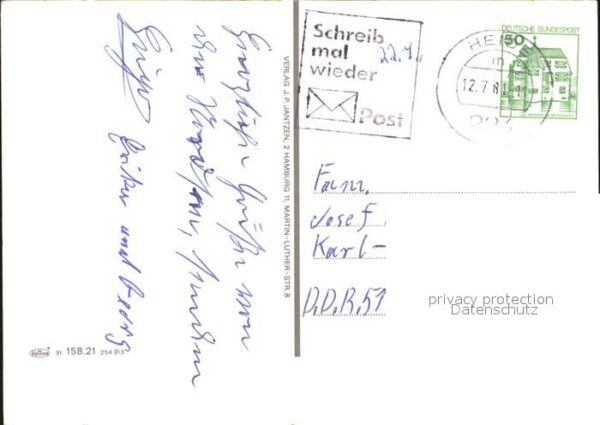 Herzliche Grüße von
der Nordsee, senden
Euch
und Georg
VERLAG J. P. JANTZEN, 2 HAMBURG 11, MARTIN-LUTHER-STR. 8
31 158.21 254 913
Schreib
mal
wieder
Post
22.7.
12.7.8
DEUTSCHE BUNDESPOST
50
Fam.
Josef
Karl-
D.D.R. 51
privacy protection
Datenschutz